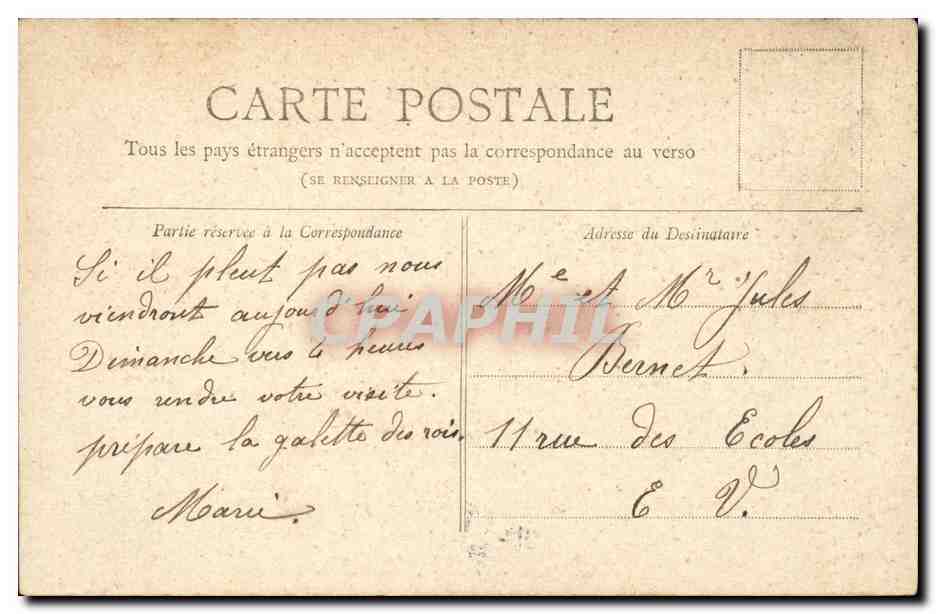 CARTE POSTALE
Tous les pays étrangers n'acceptent pas la correspondance au verso
(SE RENSEIGNER A LA POSTE)
Partie réservée à la Correspondance
Si il pleut pas nous
viendront aujourd'hui
Dimanche vers 4 heures
vous rendre votre visite.
prépare la galette des rois.
Marie.
Adresse du Destinataire
Me et Mr Jules
Bernet.
11 rue des Ecoles
E V.
CPAPHIL